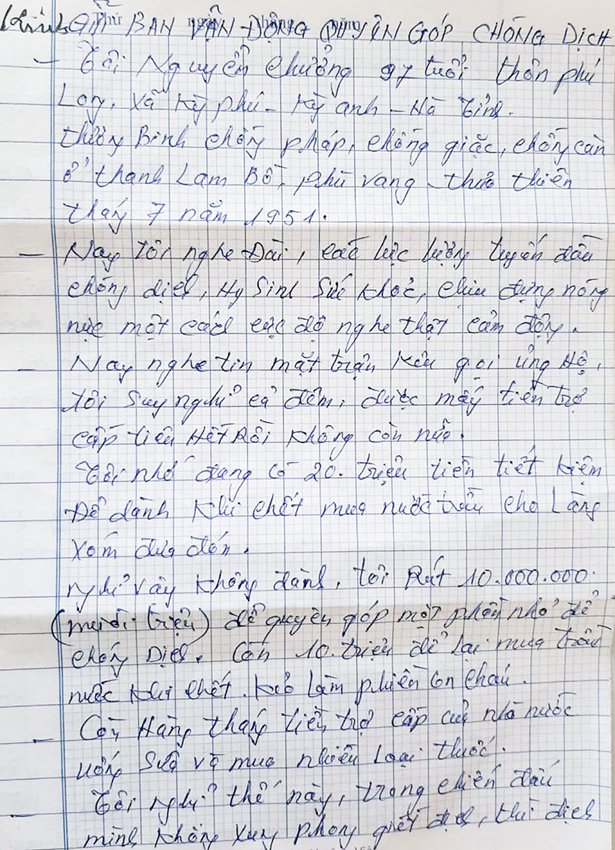 Kính gửi BAN VẬN ĐỘNG QUYÊN GÓP CHỐNG DỊCH
- Tôi Nguyễn Chưởng 97 tuổi. thôn phú
Long, xã Kỳ phú - Kỳ anh - Hà Tĩnh.
thương Binh chống pháp, chống giặc, chống càn
ở thanh Lam Bồ, phú vang thừa thiên
tháng 7 năm 1951.
- Nay tôi nghe Đài, các lực lượng tuyến đầu
chống dịch, Hy Sinh Sức khỏe, chịu đựng nóng
nực một cách cực độ nghe thật cảm động.
- Nay nghe tin mặt trận kêu gọi ủng Hộ,
tôi Suy nghĩ cả đêm, được mấy tiền trợ
cấp tiêu HếT RỒi không còn nữa.
Tôi nhớ đang có 20. triệu tiền tiết kiệm
Để dành khi chết mua nước trầu cho Làng
xóm đưa đón.
nghĩ vậy không đành, tôi Rút 10.000.000.
(mười triệu) để quyên góp một phần nhỏ để
chống Dịch. Còn 10. triệu để lại mua trầu
nước khi chết. Kẻo làm phiền con cháu.
- Còn Hàng tháng tiền trợ cấp của nhà nước
uống Sữa và mua nhiều loại thuốc.
- Tôi nghĩ thế này, trong chiến đấu
mình không xung phong giết địch, thì địch